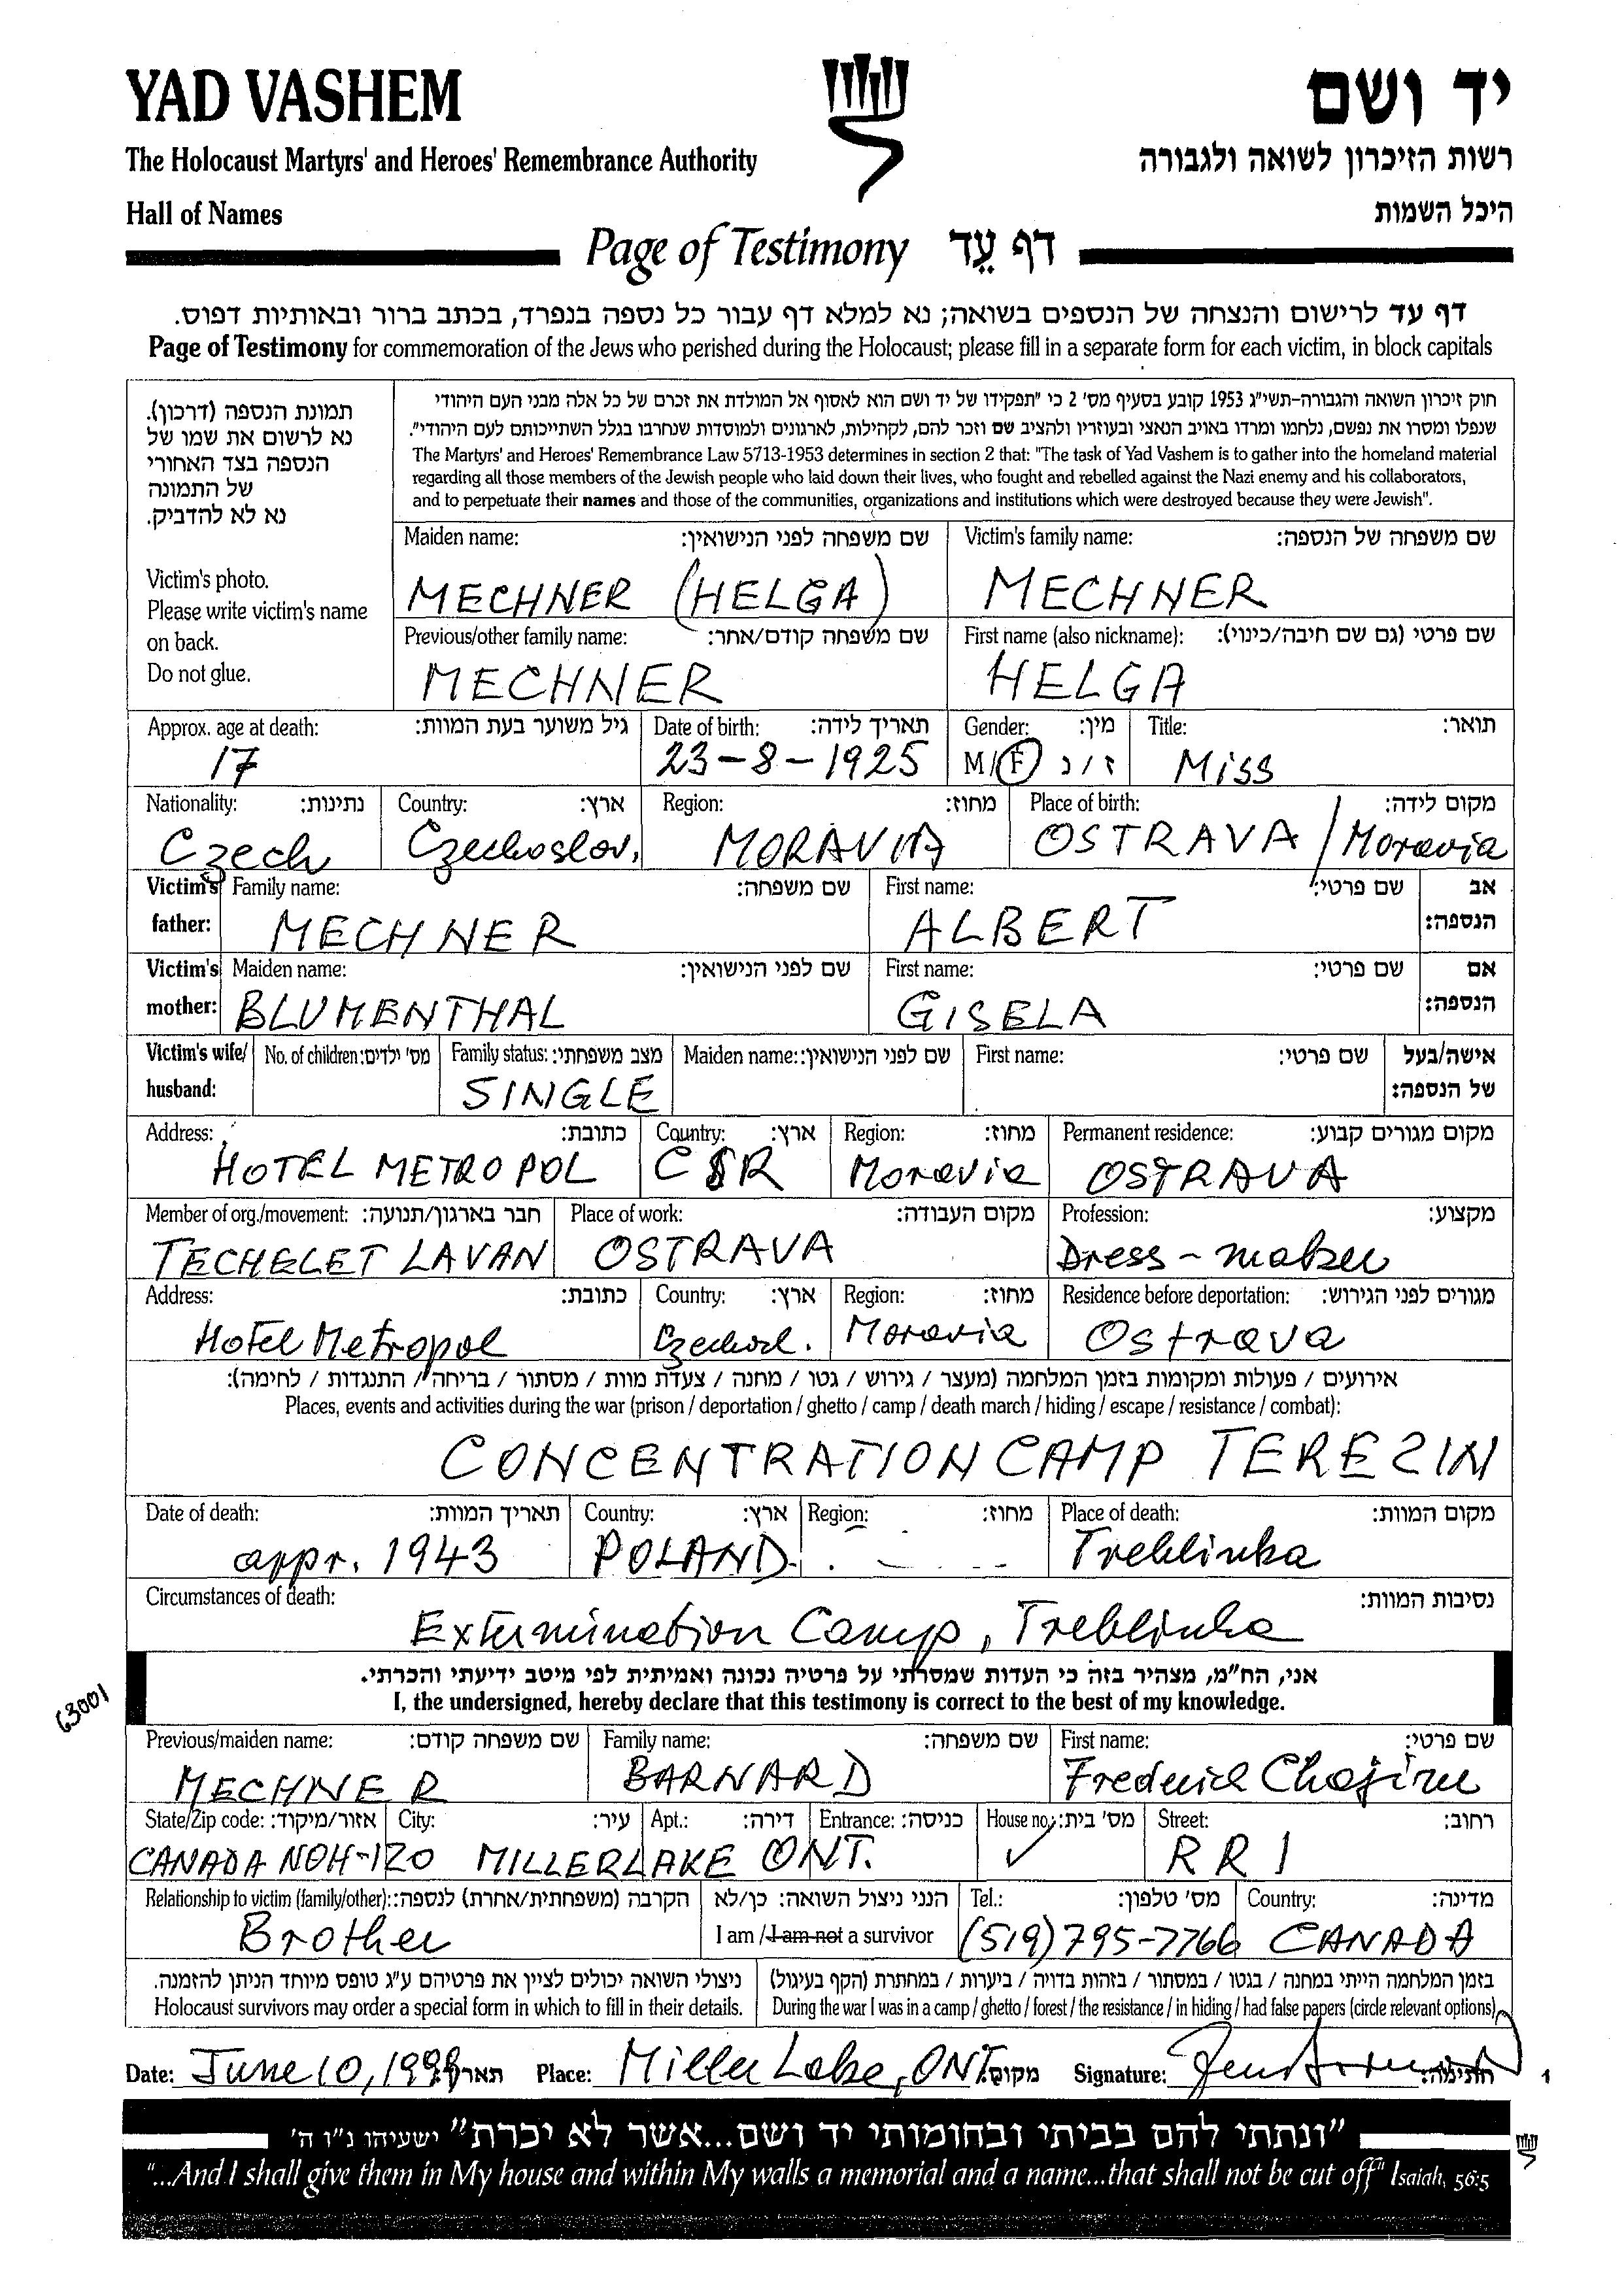 YAD VASHEM
יד ושם
The Holocaust Martyrs' and Heroes' Remembrance Authority
רשות הזיכרון לשואה ולגבורה
Hall of Names
היכל השמות
Page of Testimony דף עֵד
דף עד לרישום והנצחה של הנספים בשואה; נא למלא דף עבור כל נספה בנפרד, בכתב ברור ובאותיות דפוס.
Page of Testimony for commemoration of the Jews who perished during the Holocaust; please fill in a separate form for each victim, in block capitals
תמונת הנספה (דרכון).
נא לרשום את שמו של
הנספה בצד האחורי
של התמונה
נא לא להדביק.
Victim's photo.
Please write victim's name
on back.
Do not glue.
חוק זיכרון השואה והגבורה-תשי"ג 1953 קובע בסעיף מס' 2 כי "תפקידו של יד ושם הוא לאסוף אל המולדת את זכרם של כל אלה מבני העם היהודי
שנפלו ומסרו את נפשם, נלחמו ומרדו באויב הנאצי ובעוזריו ולהציב שם וזכר להם, לקהילות, לארגונים ולמוסדות שנחרבו בגלל השתייכותם לעם היהודי".
The Martyrs' and Heroes' Remembrance Law 5713-1953 determines in section 2 that: "The task of Yad Vashem is to gather into the homeland material
regarding all those members of the Jewish people who laid down their lives, who fought and rebelled against the Nazi enemy and his collaborators,
and to perpetuate their names and those of the communities, organizations and institutions which were destroyed because they were Jewish".
Maiden name: שם משפחה לפני הנישואין: Victim's family name: שם משפחה של הנספה:
MECHNER (HELGA) MECHNER
Previous/other family name: שם משפחה קודם/אחר: First name (also nickname): שם פרטי (גם שם חיבה/כינוי):
MECHNER HELGA
Approx. age at death: גיל משוער בעת המוות: Date of birth: תאריך לידה: Gender: מין: Title: תואר:
17 23-8-1925 M/F ז / נ Miss
Nationality: נתינות: Country: ארץ: Region: מחוז: Place of birth: מקום לידה:
Czech Czechoslov. MORAVIA OSTRAVA / Moravia
Victim's father: Family name: שם משפחה: First name: שם פרטי: אב הנספה:
MECHNER ALBERT
Victim's mother: Maiden name: שם לפני הנישואין: First name: שם פרטי: אם הנספה:
BLUMENTHAL GISELA
Victim's wife/ husband: No. of children: מס' ילדים: Family status: מצב משפחתי: Maiden name: שם לפני הנישואין: First name: שם פרטי: אישה/בעל של הנספה:
SINGLE
Address: כתובת: Country: ארץ: Region: מחוז: Permanent residence: מקום מגורים קבוע:
HOTEL METROPOL CSR Moravia OSTRAVA
Member of org./movement: חבר בארגון/תנועה: Place of work: מקום העבודה: Profession: מקצוע:
TECHELET LAVAN OSTRAVA Dress-maker
Address: כתובת: Country: ארץ: Region: מחוז: Residence before deportation: מגורים לפני הגירוש:
Hotel Metropol Czechosl. Moravia Ostrava
אירועים / פעולות ומקומות בזמן המלחמה (מעצר / גירוש / גטו / מחנה / צעדת מוות / מסתור / בריחה / התנגדות / לחימה):
Places, events and activities during the war (prison / deportation / ghetto / camp / death march / hiding / escape / resistance / combat):
CONCENTRATION CAMP TEREZIN
Date of death: תאריך המוות: Country: ארץ: Region: מחוז: Place of death: מקום המוות:
appr. 1943 POLAND Treblinka
Circumstances of death: נסיבות המוות:
Extermination Camp, Treblinka
אני, הח"מ, מצהיר בזה כי העדות שמסרתי על פרטיה נכונה ואמיתית לפי מיטב ידיעתי והכרתי.
I, the undersigned, hereby declare that this testimony is correct to the best of my knowledge.
63001
Previous/maiden name: שם משפחה קודם: Family name: שם משפחה: First name: שם פרטי:
MECHNER BARNARD Frederick
State/Zip code: אזור/מיקוד: City: עיר: Apt.: דירה: Entrance: כניסה: House no.: מס' בית: Street: רחוב:
CANADA NOH-1Z0 MILLERLAKE ONT. RR1
Relationship to victim (family/other): הקרבה (משפחתית/אחרת) לנספה: הנני ניצול השואה: כן/לא Tel.: מס' טלפון: Country: מדינה:
Brother I am / I am not a survivor (519) 795-7766 CANADA
ניצולי השואה יכולים לציין את פרטיהם ע"ג טופס מיוחד הניתן להזמנה. בזמן המלחמה הייתי במחנה / בגטו / במסתור / בזהות בדויה / ביערות / במחתרת (הקף בעיגול)
Holocaust survivors may order a special form in which to fill in their details. During the war I was in a camp / ghetto / forest / the resistance / in hiding / had false papers (circle relevant options)
Date: June 10, 1998 תאריך: Place: Miller Lake, ONT. מקום: Signature: חתימה:
"ונתתי להם בביתי ובחומותי יד ושם...אשר לא יכרת" ישעיהו נ"ו ה'
"...And I shall give them in My house and within My walls a memorial and a name...that shall not be cut off" Isaiah, 56:5